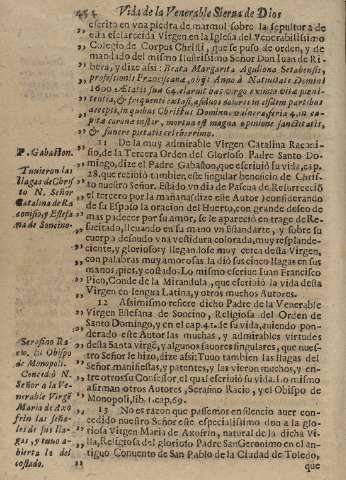 454 Vida de la Venerable Sierva de Dios
escrito en vna piedra de marmol sobre la sepultura de
esta esclarecida Virgen en la Iglesia del Venerabilissimo
Colegio de Corpus Christi, que se puso de orden, y de
mandado del mismo Ilustrissimo Señor Don Iuan de Ri-
bera, y dize assi: Beata Margarita Agullona Setabensis,
professionis Franciscana, obijt Anno à Natiuitate Domini
1600 Ætatis sua 64. claruit hac virgo eximia vita pœni-
tentia, & frequenti extasi, assiduos dolores in eisdem partibus
accepit, in quibus Christus Dominus vulnera fuit, in
capite corona instar, mortua est magna opinione sanctitatis,
& funere pietatis celeberrimo.
P. Gabaston.
11 De la muy admirable Virgen Catalina Racoci-
so, de la Tercera Orden del Glorioso Padre Santo Do-
mingo, dize el Padre Gabaston, que escriuiò su vida, cap.
28. que recibiò tambien, este singular beneficio de Chris-
to nuestro Señor. Estado vn dia de Pascua de Resurreccio
el tercero por la mañana (dize este Autor) considerando
de su Esposo la oracion del Huerto, con grande deseo de
mas padecer por su amor, se le apareciò en trage de Re-
sucitado, lleuando en su mano vn Estandarte, y sobre su
cuerpo desnudo vna vestidura colorada, muy resplande-
ciente, y glorioso; y llegandose muy cerca desta Virgen,
con palabras muy amorosas la diò sus cinco llagas en sus
manos, pies, y costado. Lo mismo escriue Iuan Francisco
Pico, Conde de la Mirandula, que escriuiò la vida desta
Virgen en lengua Latina, y otros muchos Autores.
Tuuieron las
llagas de Chris
to N. Señor
Catalina de Ra
comiso, y Estefa
na de Soncino.
12 Assimismo refiere dicho Padre de la Venerable
Virgen Estefana de Soncino, Religiosa del Orden de
Santo Domingo, y en el cap. 42. de su vida, auiendo pon-
derado este Autor las muchas, y admirables virtudes
desta Santa virgē, y algunos fauores singulares, que nues-
tro Señor le hizo, dize assi: Tuuo tambien las llagas del
Señor, manifiestas, y patentes, y las vieron muchos, y en-
tre otros su Confessor, el qual escriuiò su vida. Lo mismo
afirman otros Autores, Serafino Racio, y el Obispo de
Monopoli, lib. 1. cap. 69.
Serafino Ra
cio. El Obispo
de Monopoli.
13 No es razon que passemos en silencio auer con-
cedido nuestro Señor este especialissimo don à la glorio-
sa Virgen Maria de Axofrin, natural de la dicha Vi-
lla, Religiosa del glorioso Padre San Geronimo en el an-
tiguo Conuento de San Pablo de la Ciudad de Toledo,
que
Concediò N.
Señor a la Ve-
nerable Virgē
Maria de Axo
frin las seña-
les de sus lla-
gas, y tuuo a-
bierta la del
costado.